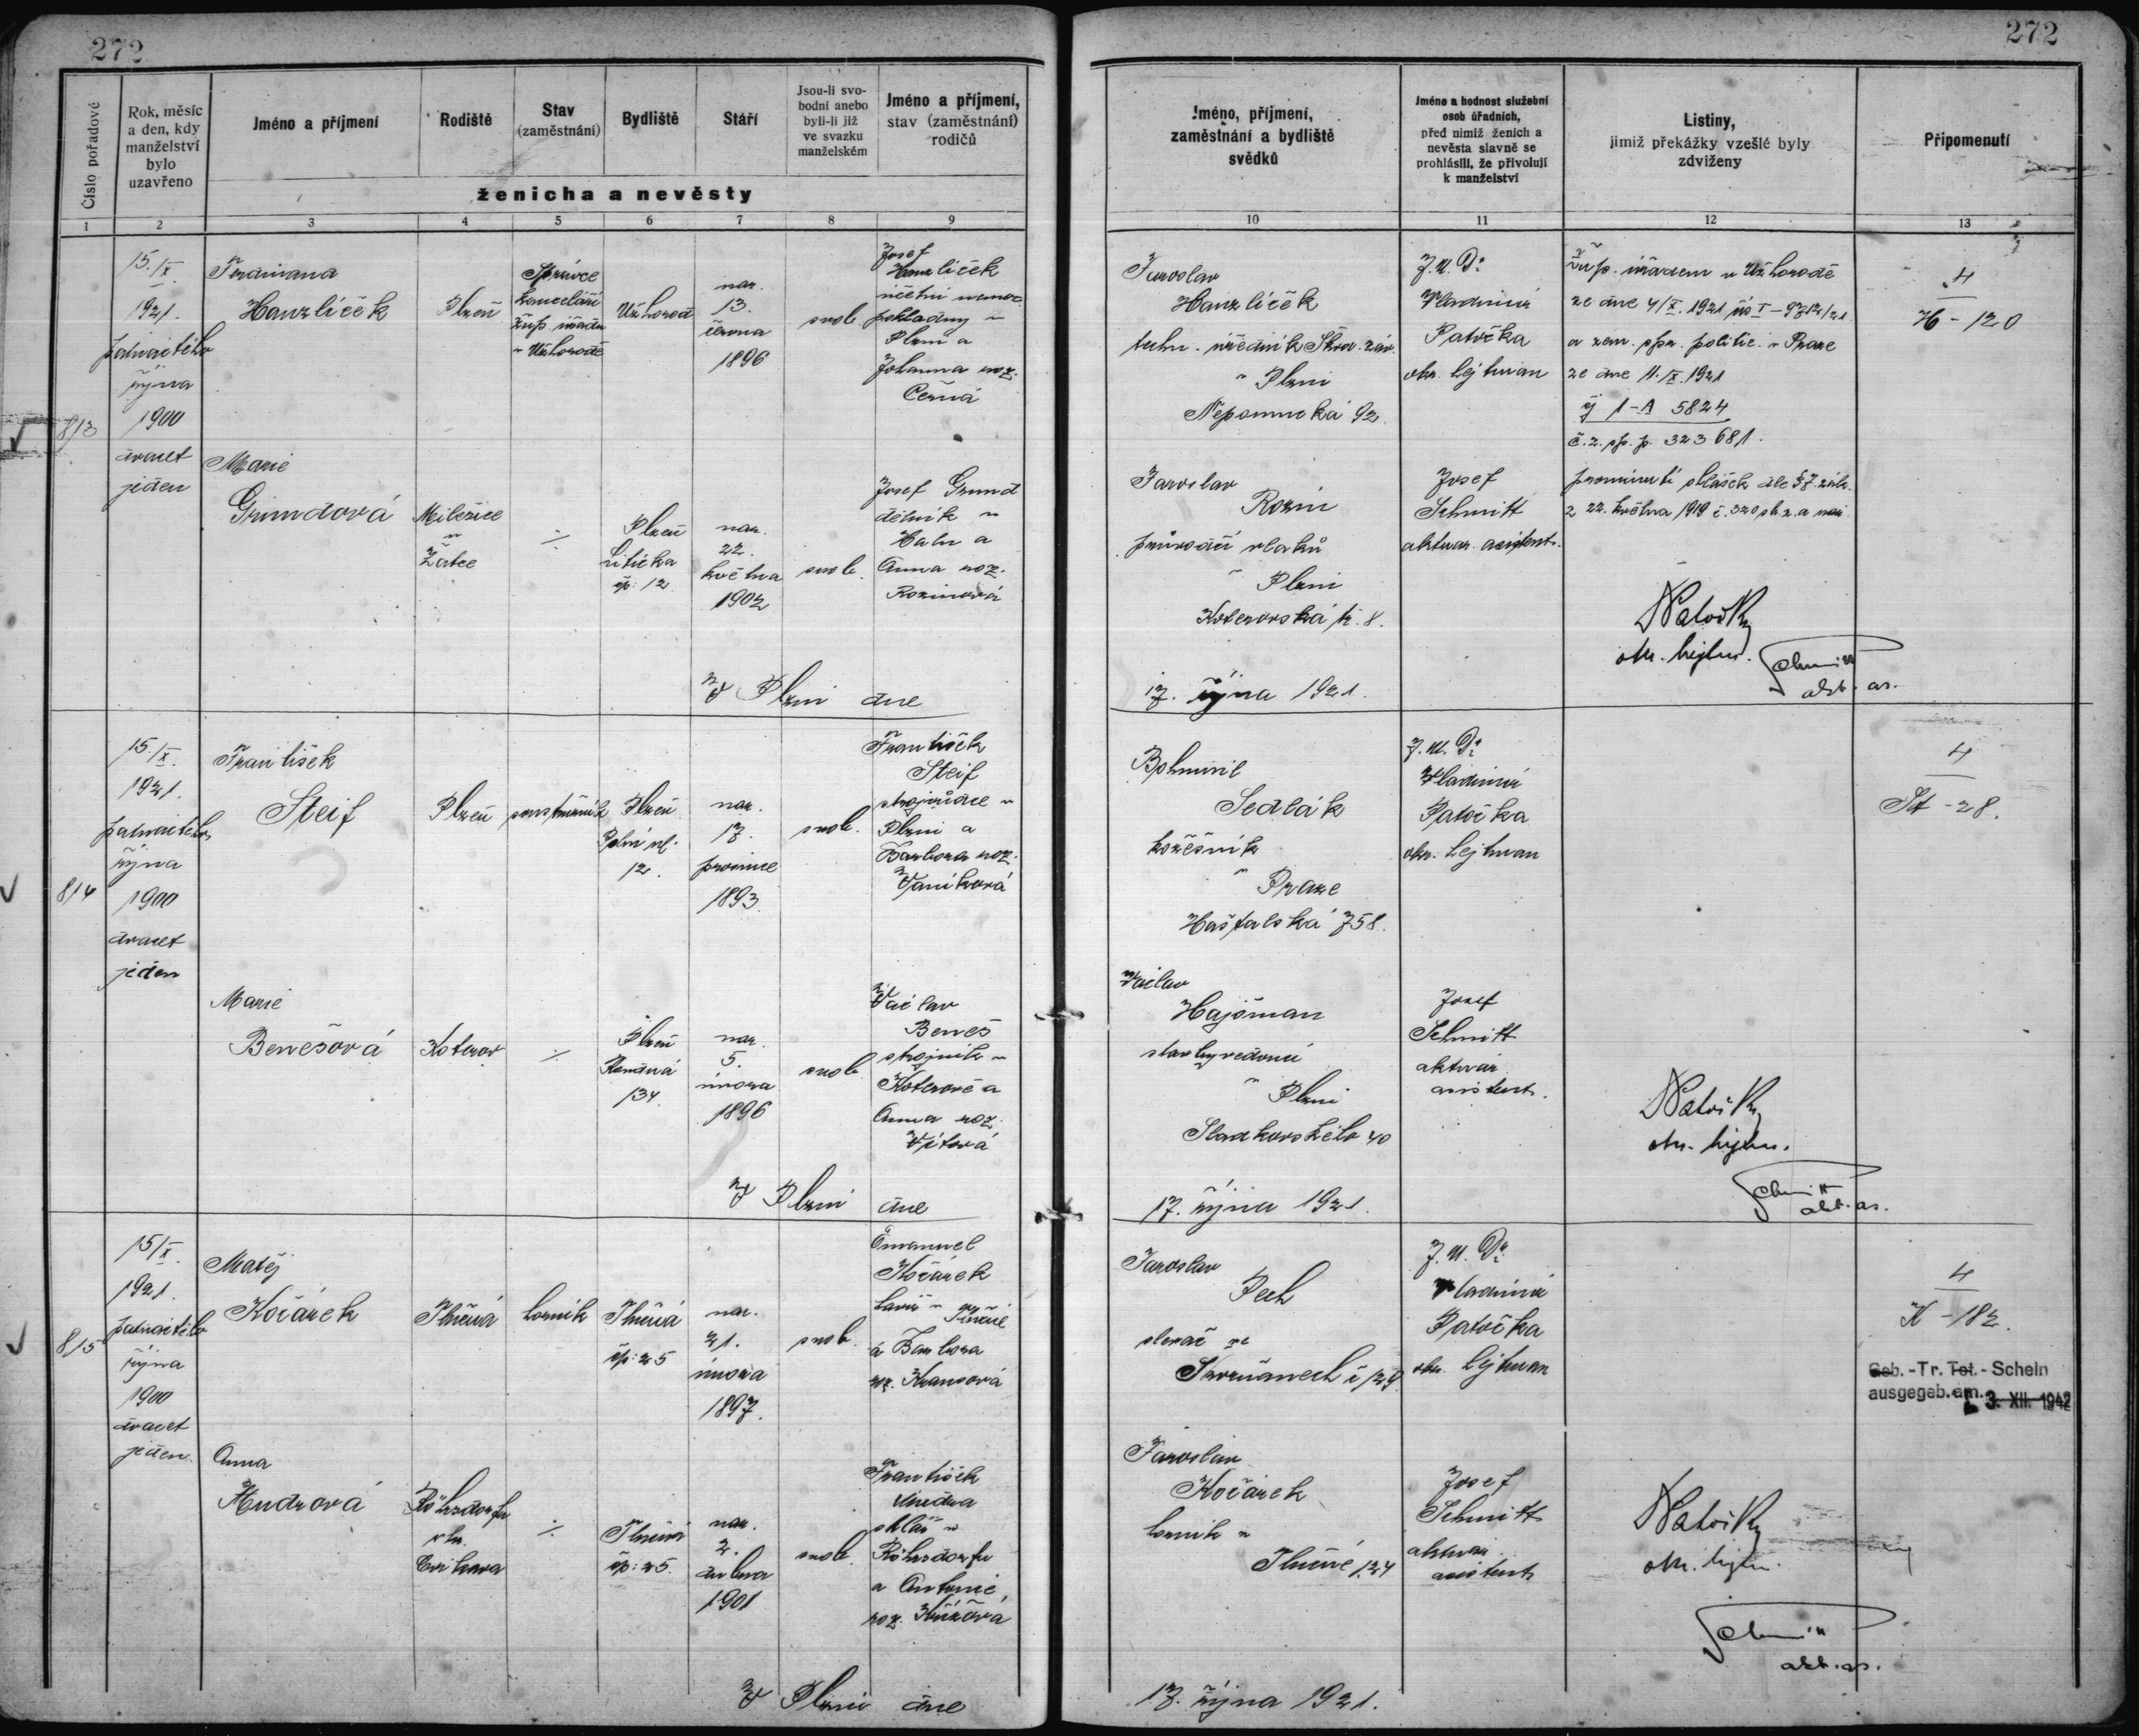 272
272
Číslo pořadové
Rok, měsíc
a den, kdy
manželství
bylo
uzavřeno
Jméno a příjmení
Rodiště
Stav
(zaměstnání)
Bydliště
Stáří
Jsou-li svo-
bodni anebo
byli-li již
ve svazku
manželském
Jméno a příjmení,
stav (zaměstnání)
rodičů
ženicha a nevěsty
1 2 3 4 5 6 7 8 9
Jméno, příjmení,
zaměstnání a bydliště
svědků
Jméno a hodnost služební
osob úřadních,
před nimiž ženich a
nevěsta slavně se
prohlásili, že přivolují
k manželství
Listiny,
jimiž překážky vzešlé byly
zdviženy
Připomenutí
10 11 12 13
813
15./X.
1921.
patnáctého
října
1900
dvacet
jeden
Ferdinand
Hanzlíček
Plzeň
Správce
kanceláře
žup. úřadu
v Užhorodě
Užhorod
nar.
13.
června
1896
svob.
Josef
Hanzlíček
účetní nemoc.
pokladny v
Plzni a
Johanna roz.
Černá
Marie
Grundová
Milčice
u
Žatce
÷
Plzeň
Litická
čp: 12
nar.
22.
května
1902
svob.
Josef Grund
dělník v
a
Anna roz.
Rozinová
V Plzni dne
Jaroslav
Hanzlíček
techn. úředník Škod. záv.
v Plzni
Nepomucká 92
J. U. Dr
Vladimír
Patočka
okr. hejtman
Jaroslav
Rozin
průvodčí vlaků
v Plzni
Koterovská tř. 8.
Josef
Schmitt
aktuar. asistent.
Žup. úřadem v Užhorodě
ze dne 4/X. 1921 čís I – 9312/21
a zem. spr. politic. v Praze
ze dne 11./X. 1921
čj 1-A 5824
č. z. sp. p. 323 681.
prominuti ohlášek dle § 7. zák.
z 22. května 1919 č. 320 sb. z. a nař.
4
H – 120
Patočka
okr. hejtm.
Schmitt
akt. as.
17. října 1921.
814
15./X.
1921.
patnáctého
října
1900
dvacet
jeden
František
Steif
Plzeň
soustružník
Plzeň
Polní ul.
12.
nar.
17.
prosince
1893
svob.
František
Steif
strojvůdce v
Plzni a
Barbora roz.
Vaníková
Marie
Benešová
Koterov
÷
Plzeň
134.
nar.
5.
února
1896
svob.
Václav
Beneš
strojník v
Koterově a
Anna roz.
Vítová
V Plzni dne
Bohumil
Sedlák
kožešník
v Praze
Haštalská 758.
J. U. Dr
Vladimír
Patočka
okr. hejtman
Václav
Hajšman
stavbyvedoucí
v Plzni
Sladkovského 40
Josef
Schmitt
aktuár.
asistent.
4
St – 28.
Patočka
okr. hejtm.
Schmitt
akt. as.
17. října 1921.
815
15/X.
1921.
patnáctého
října
1900
dvacet
jeden.
Matěj
Kočárek
Tlučná
horník
Tlučná
čp: 25
nar.
21.
února
1897.
svob.
Emanuel
Kočárek
havíř v
Tlučné
a Barbora
roz. Krausová
Anna
Mudrová
Röhrsdorfu
okr.
Cvikava
÷
Tlučná
čp: 25.
nar.
2.
dubna
1901
svob.
František
Mudra
sklář v
Röhrsdorfu
a Antonie,
roz.
V Plzni dne
Jaroslav
Pech
slevač ve
Skvrňanech č 129
J. U. Dr
Vladimír
Patočka
okr. hejtman
Jaroslav
Kočárek
horník v
Tlučné 124
Josef
Schmitt
aktuar.
asistent
4
K – 182.
Geb. -Tr. Tot. - Schein
ausgegeb. am. 3. XII. 1942
Patočka
okr. hejtm.
Schmitt
akt. as.
17. října 1921.